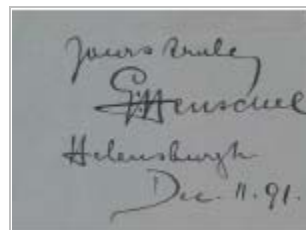 Yours truly
G. Henschel
Helensburgh
Dec. 11. 91.